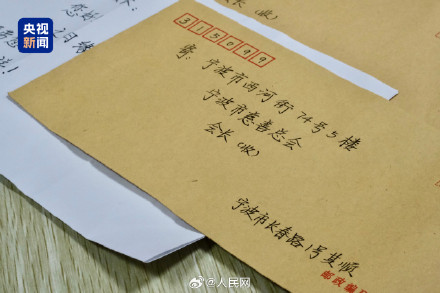 央视
新闻
315099
寄:宁波市西河街74号5楼
宁波市慈善总会
会长(收)
宁波市长春路1号 顺
邮政编
(收)
@人民网